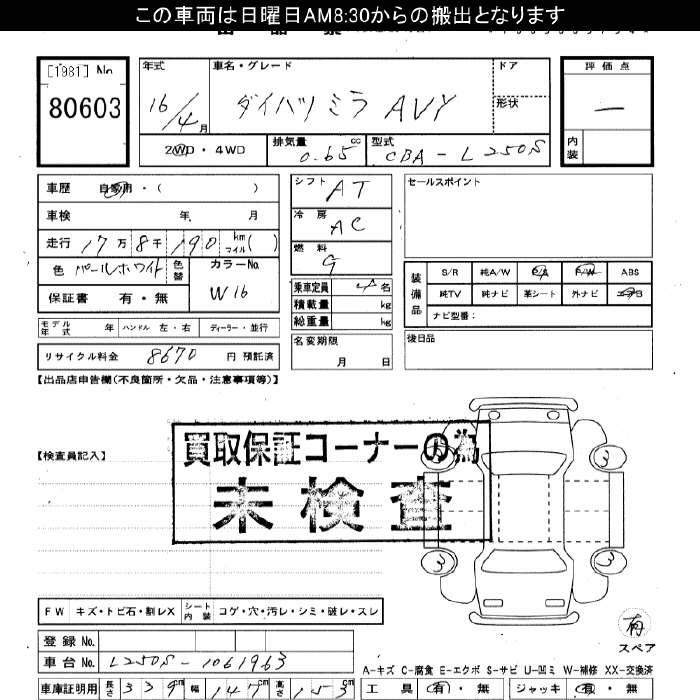 この車両は日曜日AM8:30からの搬出となります
[1981] No
80603
年式 車名・グレード ドア 評価点
16/4月 ダイハツミラ AVY 形状 —
2WD・4WD 排気量 0.65 cc 型式 CBA-L250S 内装
車歴 自家用・( )
シフト AT
セールスポイント
車検 年 月
冷房 AC
走行 17万8千190 km マイル( )
燃料 G
色 パールホワイト 色替 カラーNo. W16
装備品 S/R 純A/W P/S P/W ABS
乗車定員 4名
純TV 純ナビ 革シート 外ナビ エアB
保証書 有・無
積載量 kg
ナビ型番:
総重量 kg
モデル年式 年 ハンドル 左・右 ディーラー・並行
名変期限 月 日
後日品
リサイクル料金 8670 円 預託済
【出品店申告欄(不良箇所・欠品・注意事項等)】
【検査員記入】
買取保証コーナーの為
未検査
3
3
3
FW キズ・トビ石・割レX シート内装 コゲ・穴・汚レ・シミ・破レ・スレ
有
スペア
登録 No.
車台 No. L250S-1061963
A-キズ C-腐食 E-エクボ S-サビ U-凹ミ W-補修 XX-交換済
車庫証明用 長さ 339cm 幅 147cm 高さ 153cm
工具 有・無 ジャッキ 有・無